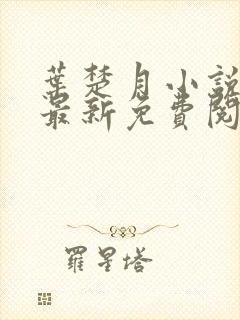 葉楚月小說
最新免費閱
羅星塔